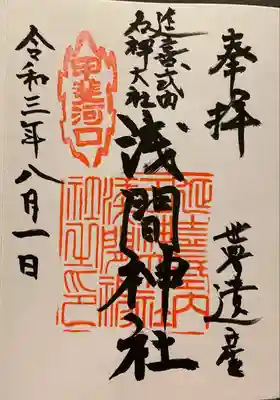 奉拝
世界遺産
延喜式内
名神大社
浅間神社
甲斐河口
令和三年八月一日